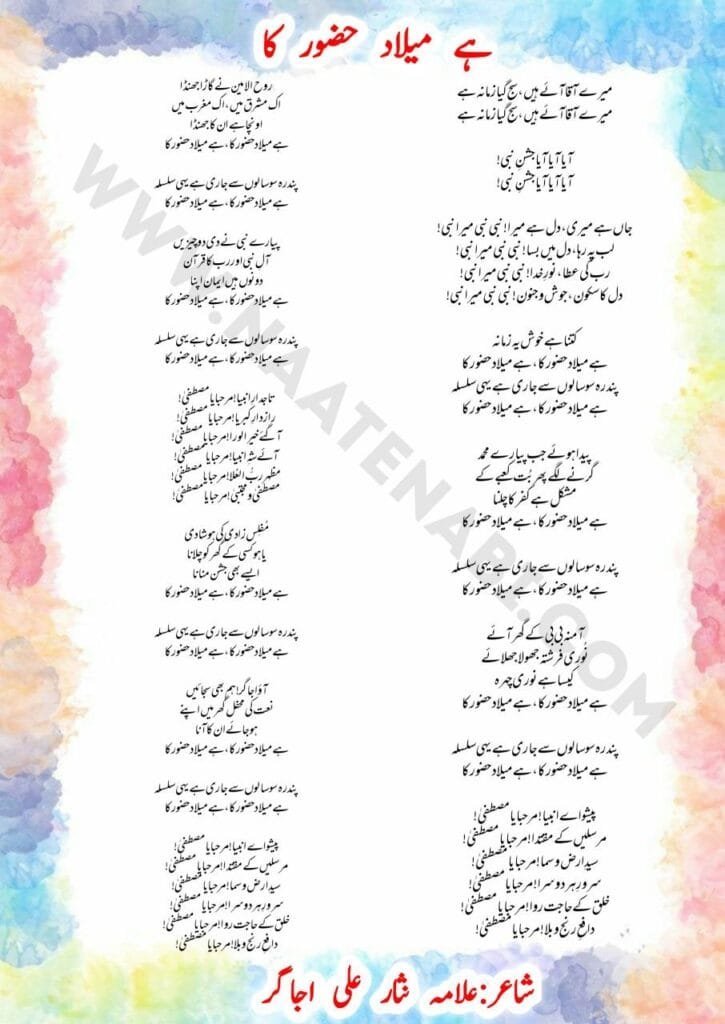 ہے میلاد حضور کا
میرے آقا آئے ہیں، سج گیا زمانہ ہے
میرے آقا آئے ہیں، سج گیا زمانہ ہے
آیا آیا آیا جشنِ نبی!
آیا آیا آیا جشنِ نبی!
جاں ہے میری، دل ہے میرا! نبی نبی میرا نبی!
لب پہ رہا، دل میں بسا! نبی نبی میرا نبی!
رب کی عطا، نورِ خدا! نبی نبی میرا نبی!
دل کا سکون، جوش و جنون! نبی نبی میرا نبی!
کتنا ہے خوش یہ زمانہ
ہے میلاد حضور کا، ہے میلاد حضور کا
پندرہ سو سالوں سے جاری ہے یہی سلسلہ
ہے میلاد حضور کا، ہے میلاد حضور کا
پیدا ہوئے جب پیارے محمد
گرنے لگے پھر بُت کعبے کے
مشکل ہے کفر کا چلنا
ہے میلاد حضور کا، ہے میلاد حضور کا
پندرہ سو سالوں سے جاری ہے یہی سلسلہ
ہے میلاد حضور کا، ہے میلاد حضور کا
آمنہ بی بی کے گھر آئے
نُوری فرشتہ جھولا جھلائے
کیسا ہے نوری چہرہ
ہے میلاد حضور کا، ہے میلاد حضور کا
پندرہ سو سالوں سے جاری ہے یہی سلسلہ
ہے میلاد حضور کا، ہے میلاد حضور کا
پیشواے انبیا! مرحبا یا مصطفیٰ!
مرسلیں کے مقتدا! مرحبا یا مصطفیٰ!
سیدِ ارض و سما! مرحبا یا مصطفیٰ!
سرورِ ہر دوسرا! مرحبا یا مصطفیٰ!
خلق کے حاجت روا! مرحبا یا مصطفیٰ!
دافعِ رنج و بلا! مرحبا یا مصطفیٰ!
روح الامین نے گاڑا جھنڈا
اک مشرق میں، اک مغرب میں
اونچا ہے ان کا جھنڈا
ہے میلاد حضور کا، ہے میلاد حضور کا
پندرہ سو سالوں سے جاری ہے یہی سلسلہ
ہے میلاد حضور کا، ہے میلاد حضور کا
پیارے نبی نے دی دو چیزیں
آلِ نبی اور رب کا قرآن
دونوں ہیں ایمان اپنا
ہے میلاد حضور کا، ہے میلاد حضور کا
پندرہ سو سالوں سے جاری ہے یہی سلسلہ
ہے میلاد حضور کا، ہے میلاد حضور کا
تاجدارِ انبیا! مرحبا یا مصطفیٰ!
رازدارِ کبریا! مرحبا یا مصطفیٰ!
آگئے خیر الورا! مرحبا یا مصطفیٰ!
آئے شہِ انبیا! مرحبا یا مصطفیٰ!
مظہرِ ربُّ العُلا! مرحبا یا مصطفیٰ!
مصطفیٰ و مجتبیٰ! مرحبا یا مصطفیٰ!
مُفلِس زادی کی ہو شادی
یا ہو کسی کے گھر کو چلانا
ایسے بھی جشن منانا
ہے میلاد حضور کا، ہے میلاد حضور کا
پندرہ سو سالوں سے جاری ہے یہی سلسلہ
ہے میلاد حضور کا، ہے میلاد حضور کا
آؤ اجاگر! ہم بھی سجائیں
نعت کی محفل گھر میں اپنے
ہو جائے ان کا آنا
ہے میلاد حضور کا، ہے میلاد حضور کا
پندرہ سو سالوں سے جاری ہے یہی سلسلہ
ہے میلاد حضور کا، ہے میلاد حضور کا
پیشواے انبیا! مرحبا یا مصطفیٰ!
مرسلیں کے مقتدا! مرحبا یا مصطفیٰ!
سیدِ ارض و سما! مرحبا یا مصطفیٰ!
سرورِ ہر دوسرا! مرحبا یا مصطفیٰ!
خلق کے حاجت روا! مرحبا یا مصطفیٰ!
دافعِ رنج و بلا! مرحبا یا مصطفیٰ!
شاعر: علامہ نثار علی اجاگر
WWW.NAATENABI.COM